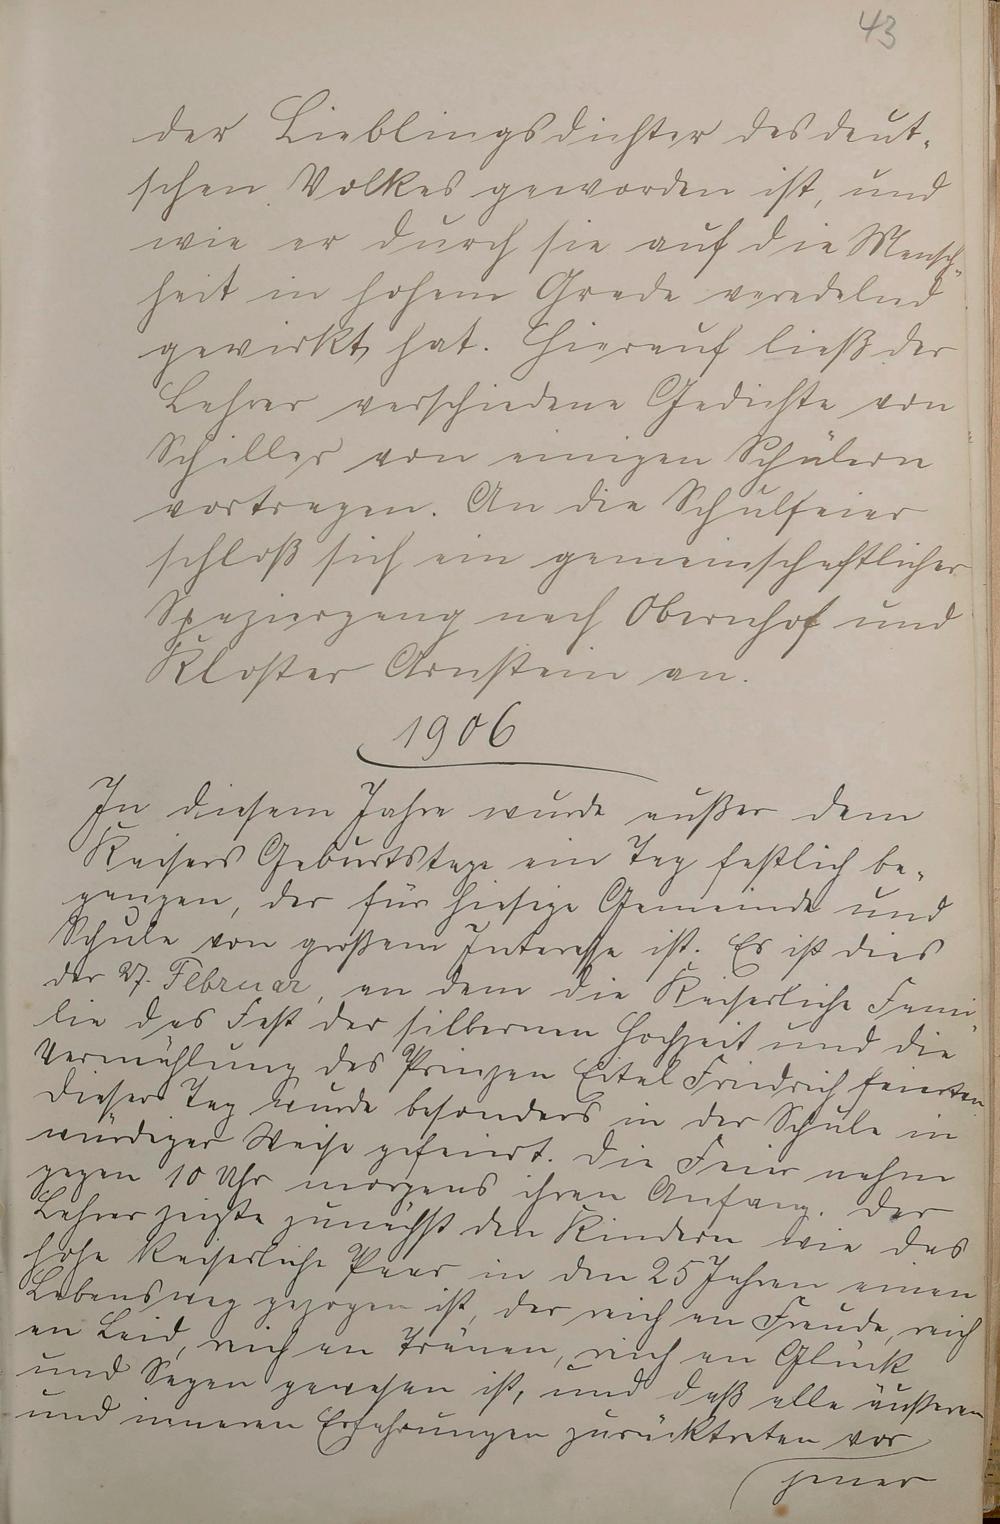 43
der Lieblingsdichter des deut-
schen Volkes geworden ist, und
wie er durch sie auf die Mensch-
heit in hohem Grade veredelnd
gewirkt hat. Hierauf ließ der
Lehrer verschiedene Gedichte von
Schiller von einigen Schülern
vortragen. An die Schulfeier
schloß sich ein gemeinschaftlicher
Spaziergang nach Obernhof und
Kloster Arnstein an.
1906
In diesem Jahre wurde außer dem
Kaisers Geburtstage ein Tag festlich be-
gangen, der für hiesige Gemeinde und
Schule von großem Interesse ist. Es ist dies
der 27. Februar, an dem die Kaiserliche Fami-
lie das Fest der silbernen Hochzeit und die
Vermählung des Prinzen Eitel Friedrich feierten.
Dieser Tag wurde besonders in der Schule in
würdiger Weise gefeiert. Die Feier nahm
gegen 10 Uhr morgens ihren Anfang. Der
Lehrer zeigte zunächst den Kindern wie das
hohe Kaiserliche Paar in den 25 Jahren einen
Lebensweg gezogen ist, der reich an Freude, reich
an Leid, reich an Tränen, reich an Glück
und Segen gewesen ist, und daß alle äußeren
und inneren Erfahrungen zurücktreten vor
jener